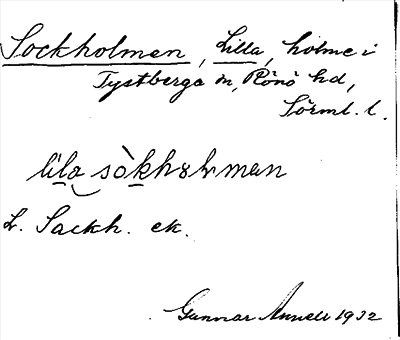 Sockholmen, Lilla, holme i
Tystberga sn, Rönö hd,
Sörml. l.
lila sòkhɷlman
L. Sackh. ek.
Gunnar Annell 1932